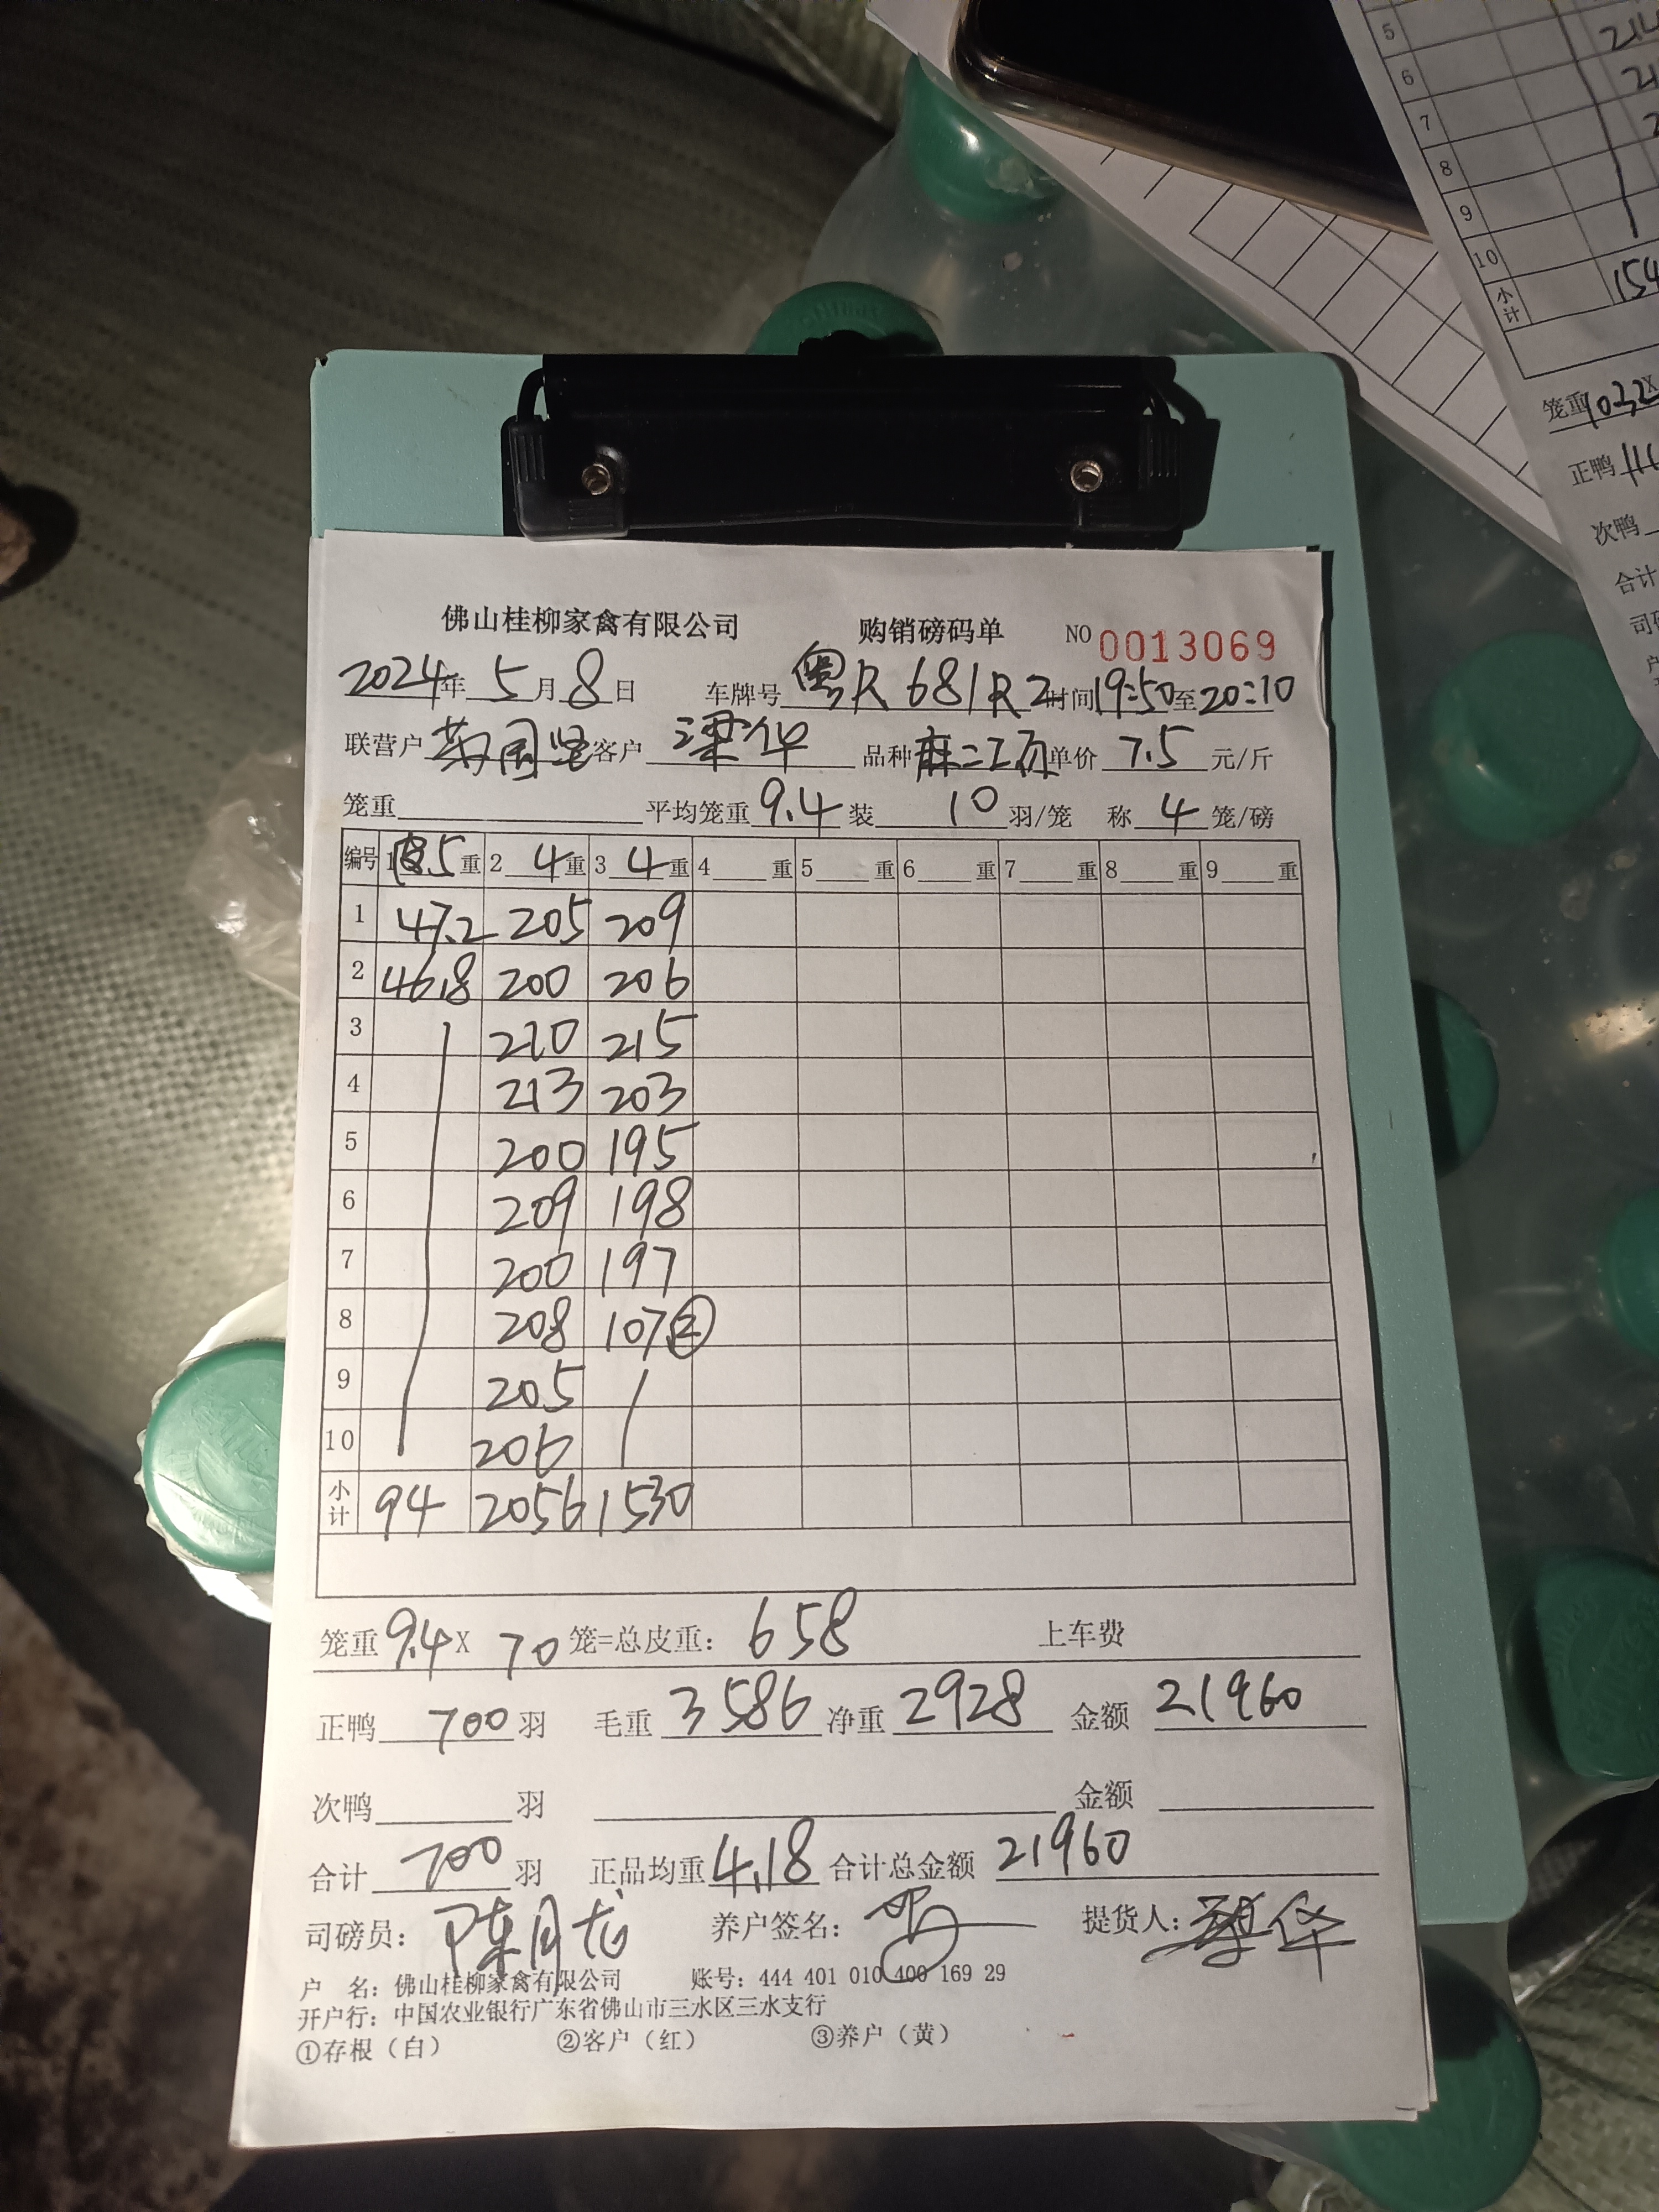 佛山桂柳家禽有限公司 购销磅码单 NO 0013069
2024年 5月 8日 车牌号 粤R 681R2 时间 19:50 至 20:10
联营户 国坚 客户 梁华 品种 麻二 单价 7.5 元/斤
笼重 平均笼重 9.4 装 10 羽/笼 称 4 笼/磅
编号 1 重 2 4 重 3 4 重 4 重 5 重 6 重 7 重 8 重 9 重
1 47.2 205 209
2 46.8 200 206
3 210 215
4 213 203
5 200 195
6 209 198
7 200 197
8 208 107 ②
9 205
10 206
小计 94 2056 1530
笼重 9.4 X 70 笼=总皮重: 658 上车费
正鸭 700 羽 毛重 3586 净重 2928 金额 21960
次鸭 羽 金额
合计 700 羽 正品均重 4.18 合计总金额 21960
司磅员: 陈月龙 养户签名: 提货人: 华
户 名: 佛山桂柳家禽有限公司 账号: 444 401 010 400 169 29
开户行: 中国农业银行广东省佛山市三水区三水支行
①存根（白） ②客户（红） ③养户（黄）
5 214
6
7
8
9
10
小计 154
笼重 1032 X
正鸭
次鸭
合计
司